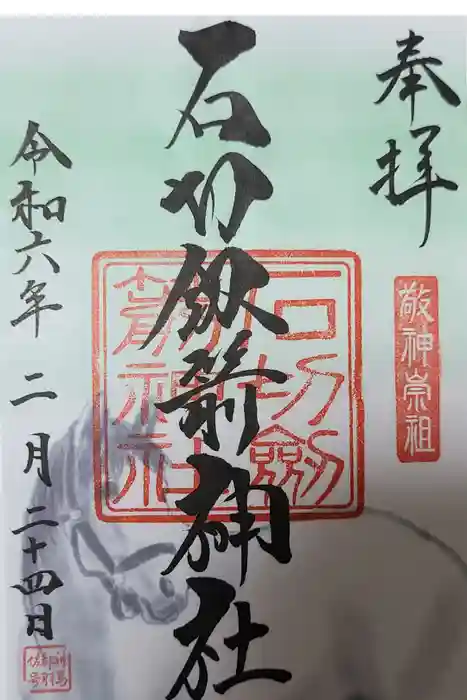 奉拝
敬神崇祖
石切劔箭神社
石切劔箭神社
令和六年 二月 二十四日